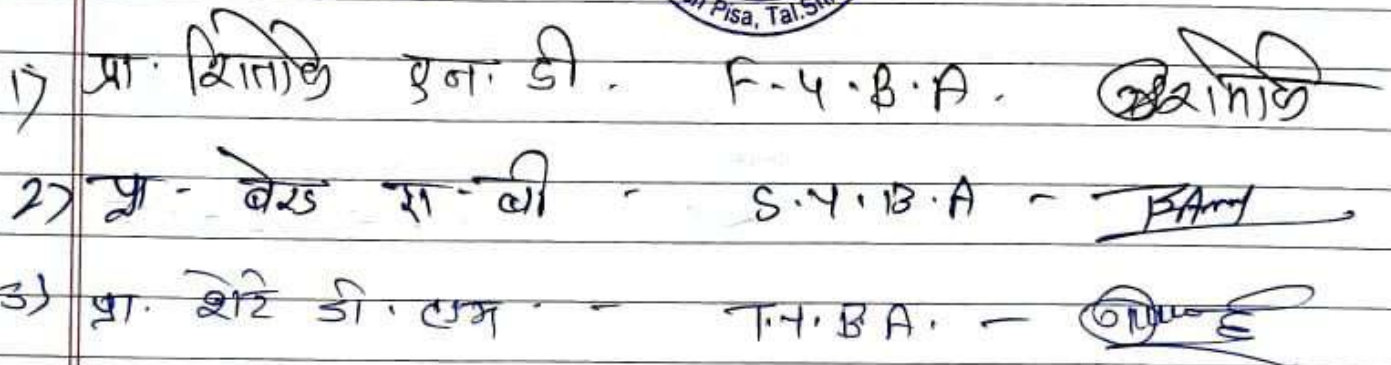 Pisa, Tal.
1) प्रा. शितोळे एन. डी. F.Y.B.A.
2) प्रा - बेरड - बी - S.Y.B.A -
3) प्रा. शेटे डी. एम - T.Y.B.A. -